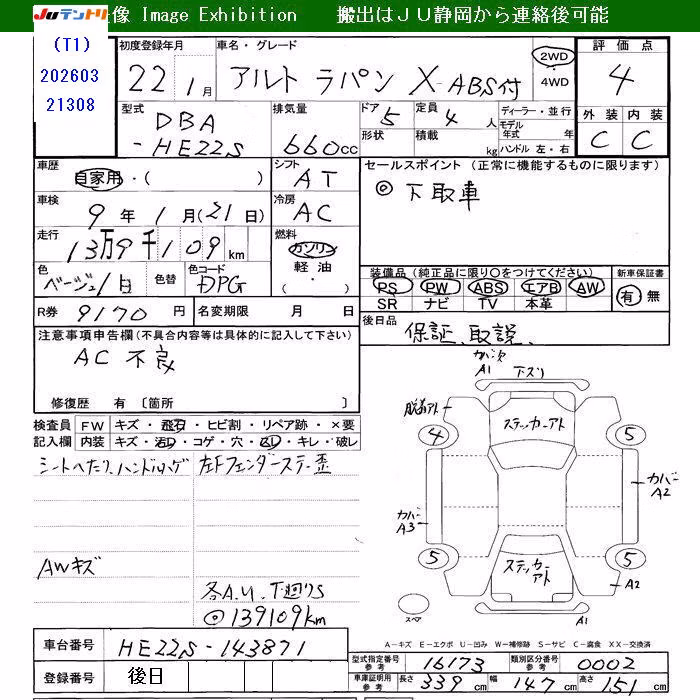 Juテントリ 像 Image Exhibition 搬出はJU静岡から連絡後可能
(T1)
202603
21308
初度登録年月
22 1月
車名・グレード
アルト ラパン X-ABS付
2WD
・
4WD
評価点
4
型式
DBA
-HE22S
排気量
660cc
ドア 5
定員 4 人
形状
積載 kg
ディーラー・並行
モデル年式 年
ハンドル 左・右
外装 内装
C C
車歴
自家用・( )
シフト
AT
セールスポイント(正常に機能するものに限ります)
◎ 下取車
車検
9年 1月(21日)
冷房
AC
走行
13万9千109km
燃料
ガソリン
軽油
( ・ )
色
ベージュ/白
色替
色コード
DPG
装備品(純正品に限り○をつけてください)
PS PW ABS エアB AW
SR ナビ TV 本革
新車保証書
有 無
R券 9170円
名変期限 月 日
後日品
保証、取説、
注意事項申告欄(不具合内容等は具体的に記入して下さい)
AC 不良
修復歴 有 〔箇所 〕
検査員 FW キズ・飛石・ヒビ割・リペア跡・×要
記入欄 内装 キズ・汚レ・コゲ・穴・スレ・キレ・破レ
シートへたり、ハンドルハゲ
左Fフェンダーステー歪
AWキズ
各A.U.下廻りS
◎139109km
A1
下ズリ
脱着アト
ステッカーアト
4
5
カバー A2
カバー
A3
5
5
ステッカーアト
A2
A1
スペア
A-キズ E-エクボ U-凹み W-補修跡 S-サビ C-腐食 XX-交換済
車台番号 HE22S-143871
登録番号 後日
型式指定番号 参考 16173
類別区分番号 参考 0002
車庫証明用 参考 長さ 339cm 幅 147cm 高さ 151cm